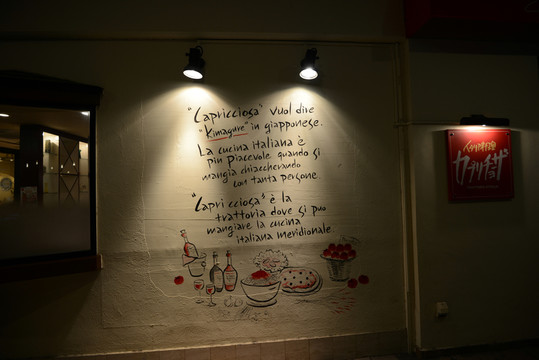 "Capricciosa" vuol dire
"Kimagure" in giapponese.
La cucina italiana è
piu piacevole quando si
mangia chiacchierando
con tanta persone.
"Capricciosa" è la
trattoria dove si può
mangiare la cucina
italiana meridionale.
カプリチョーザ